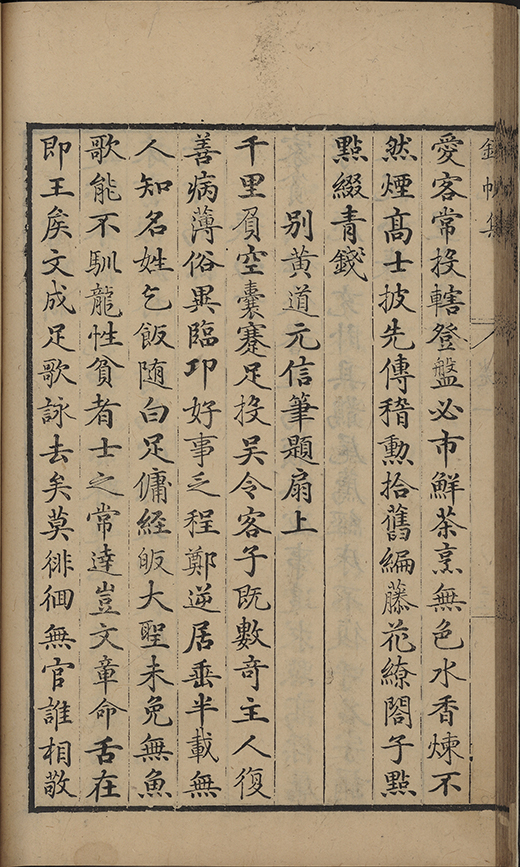 愛客常投轄登盤必市鮮茶烹無色水香煉不
然煙髙士披先傳稽勲拾舊編藤花繚閣子點
點綴青錢
别黄道元信筆題扇上
千里負空囊蹇足投吴令客子既數竒主人復
善病薄俗異臨卭好事乏程鄭逆居垂半載無
人知名姓乞飯随白足傭經皈大聖未免無魚
歌能不馴龍性貧者士之常達豈文章命舌在
即王矦文成足歌詠去矣莫徘徊無官誰相敬